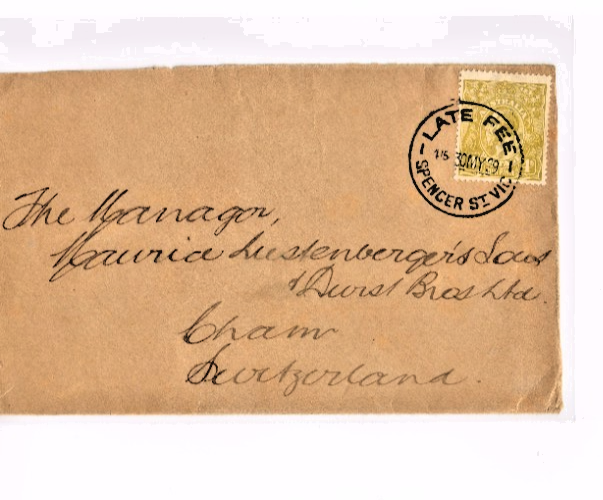 LATE FEE 1
1 15 30 MY 29
SPENCER ST VIC
The Manager,
Maurice Lustenberger's Sons
& Durst Bros Ltd.
Cham
Switzerland.